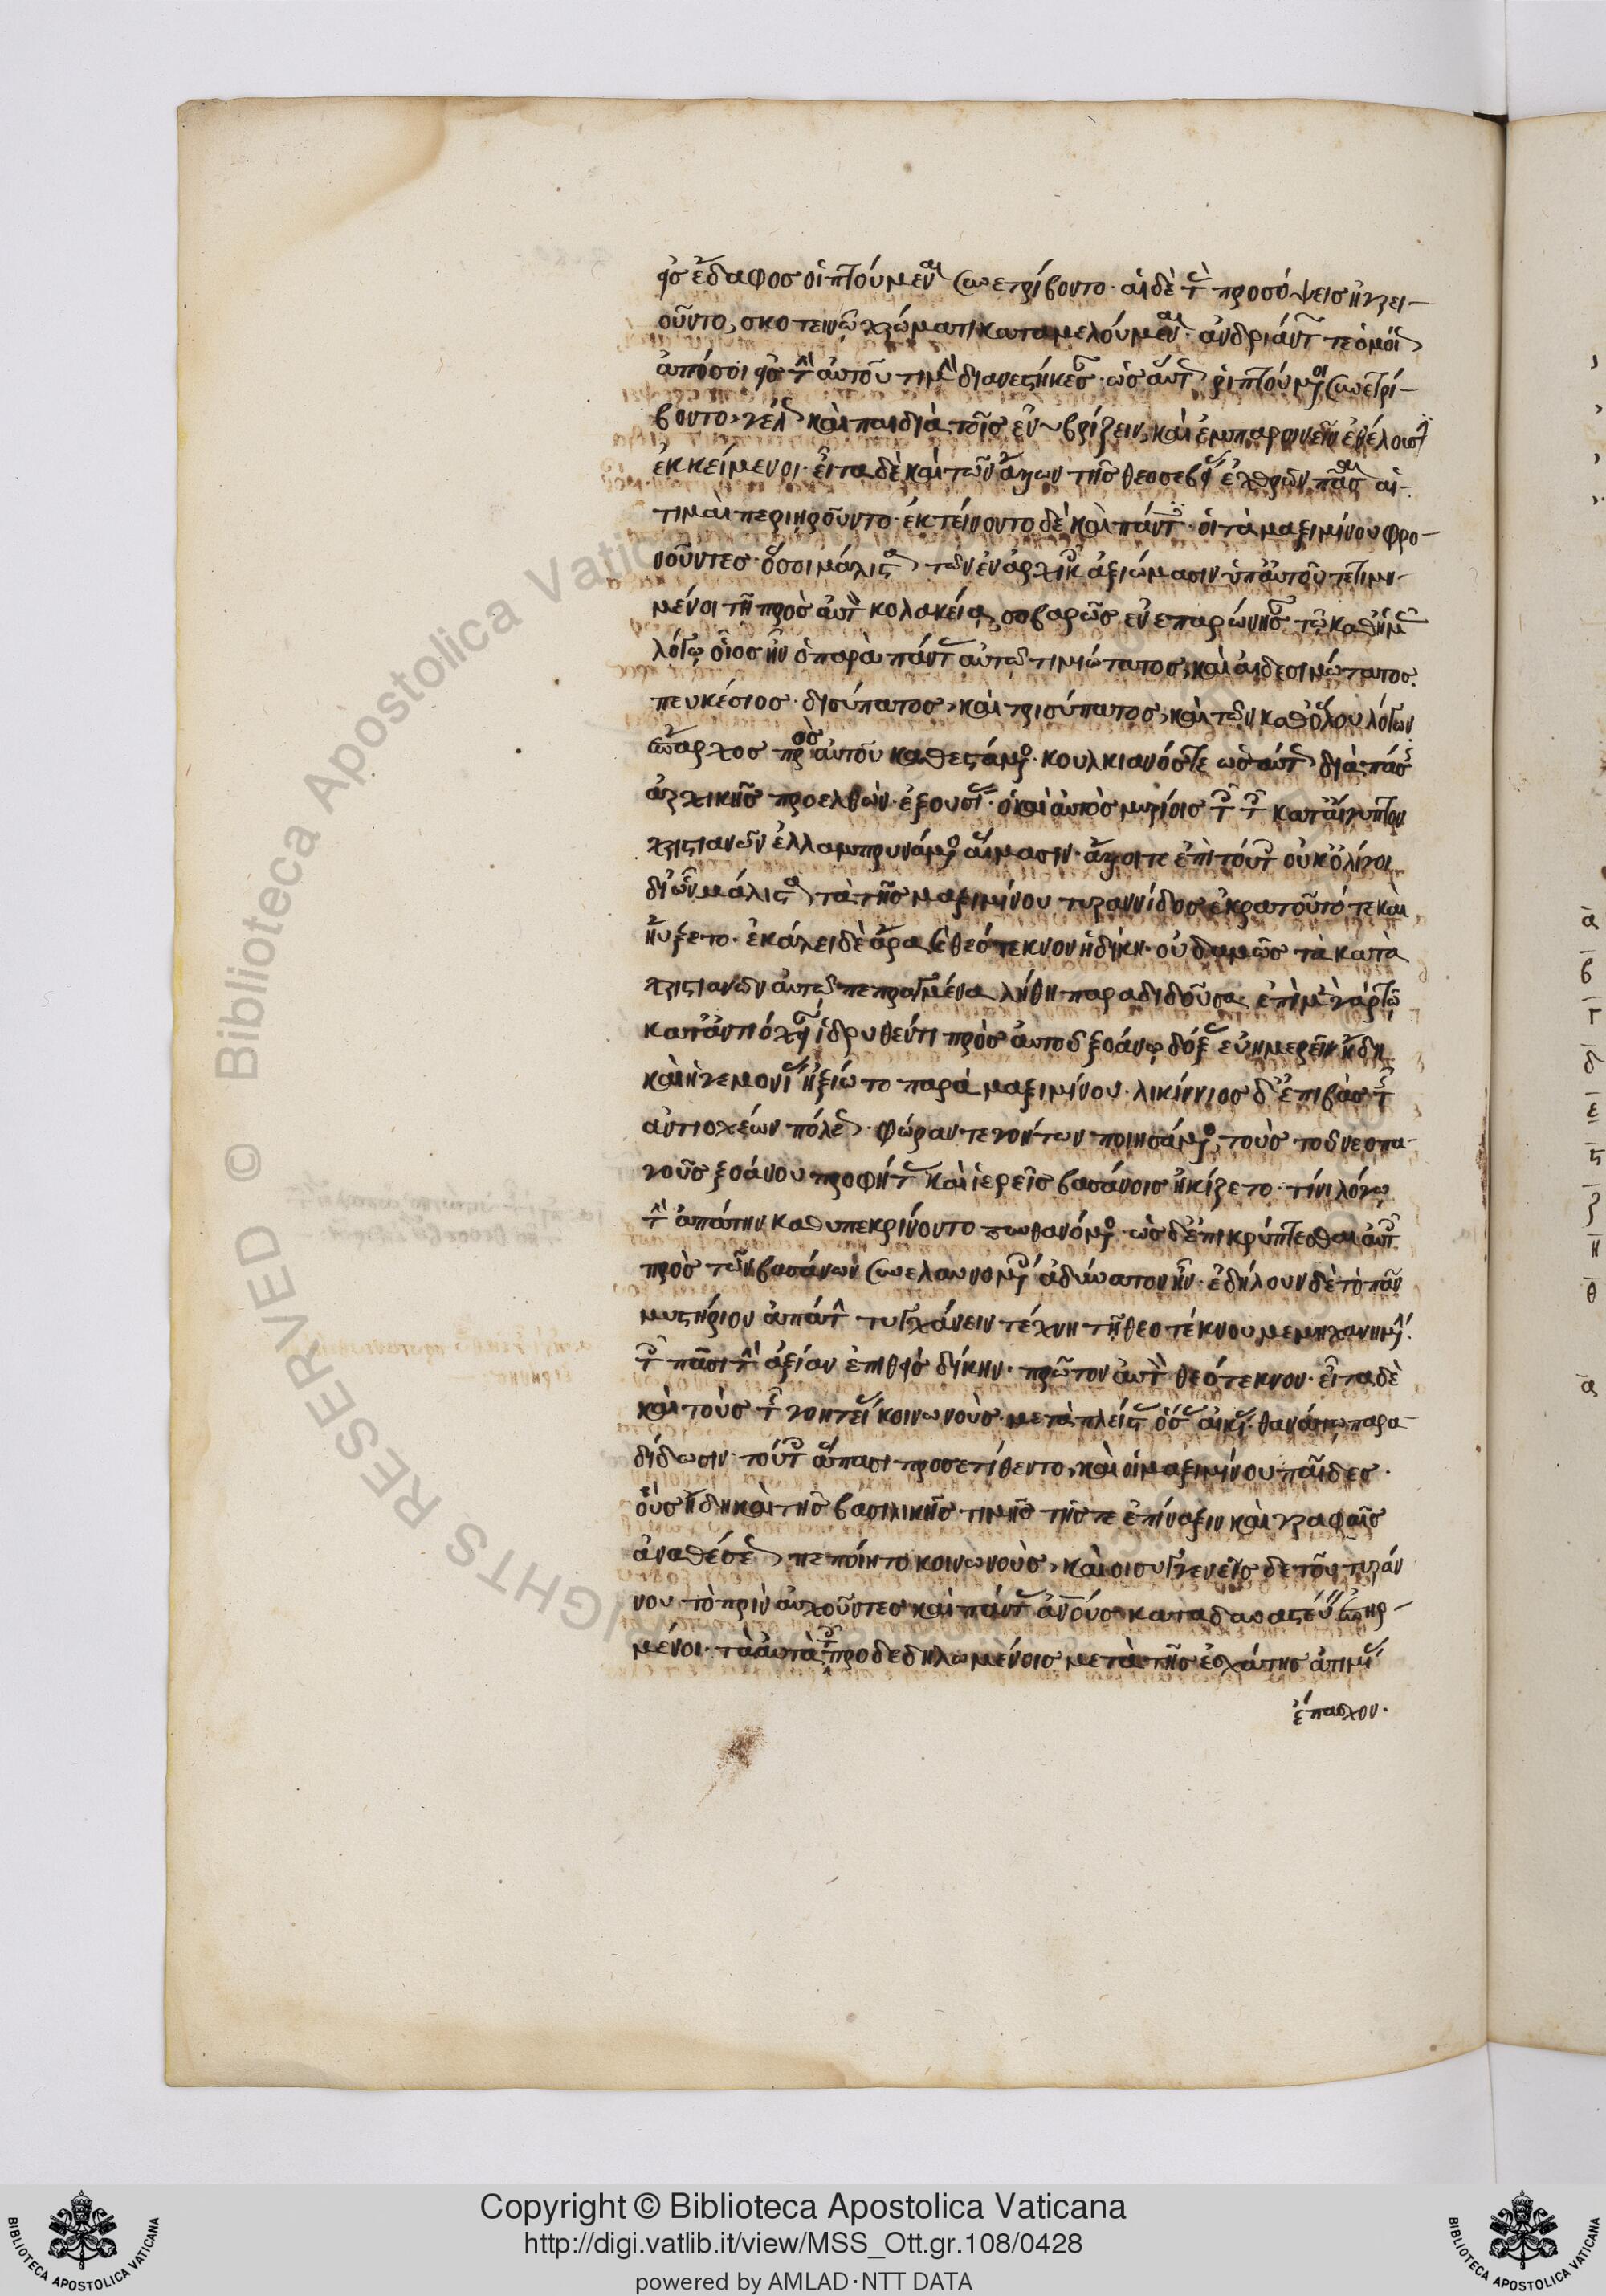 εἰς ἔδαφος ῥιπτούμεναι συνετρίβοντο· αἱ δὲ τὰς προσόψεις ἠχρει-
οῦντο, σκοτεινῷ χρώματι καταμελούμεναι· ἀνδριάντων τε ὁμοίως
ὁπόσοι εἰς τὴν αὐτοῦ τιμὴν διανεστήκεσαν· ὡσαύτως ῥιπτούμενοι συνετρί-
βοντο, γέλως καὶ παιδιὰ τοῖς ἐνυβρίζειν, καὶ ἐμπαροινεῖν ἐθέλουσιν
ἐκκείμενοι· εἶτα δὲ καὶ τῶν ἄλλων τῆς θεοσεβείας ἐχθρῶν πᾶσαι αἱ
τιμαὶ περιηροῦντο· ἐκτείνοντο δὲ καὶ πάντες· οἱ τὰ μαξιμίνου φρο-
νοῦντες· ὅσοι μάλιστα τῶν ἐν ἀρχικοῖς ἀξιώμασιν ὑπ' αὐτοῦ τετιμη-
μένοι τῇ πρὸς αὐτὸν κολακείᾳ, σοβαρῶς ἐνεπαρῴνησαν τῷ καθ' ἡμᾶς
λόγῳ οἷος ἦν ὁ παρὰ πάντας αὐτῷ τιμιώτατος, καὶ αἰδεσιμώτατος.
πευκέσιος· δισύπατος, καὶ τρισύπατος, καὶ τῶν καθόλου λόγων
ἔπαρχος πρὸς αὐτοῦ καθεστάμενος· κουλκιανός τε ὡσαύτως διὰ πάσης
ἀρχικῆς προελθὼν ἐξουσίας· ὁ καὶ αὐτὸς μυρίοις τοῖς τῶν κατ' αἴγυπτον
χριστιανῶν ἐλλαμπρυνάμενος αἵμασιν· ἄλλοι τε ἐπὶ τούτοις οὐκ ὀλίγοι
δι' ὧν μάλιστα τὰ τῆς μαξιμίνου τυραννίδος ἐκρατοῦτό τε καὶ
ηὔξετο· ἐκάλει δὲ ἄρα καὶ θεότεκνον ἡ δίκη· οὐδαμῶς τὰ κατὰ
χριστιανῶν αὐτῷ πεπραγμένα λήθῃ παραδιδοῦσα· ἐπὶ μὲν γὰρ τῷ
κατ' ἀντιόχειαν ἱδρυθέντι πρὸς αὐτοῦ ξοάνῳ δόξας εὐημερεῖν ἤδη
καὶ ἡγεμονίας ἠξίωτο παρὰ μαξιμίνου· λικίννιος δ' ἐπιβὰς τῆς
ἀντιοχέων πόλεως· φώραν τε γοήτων ποιησάμενος, τοὺς τοῦ νεοπα-
γοῦς ξοάνου προφήτας καὶ ἱερεῖς βασάνοις ᾐκίζετο· τίνι λόγῳ
τὴν ἀπάτην καθυπεκρίνοντο πυνθανόμενος· ὡς δ' ἐπικρύπτεσθαι αὐτοῖς
πρὸς τῶν βασάνων συνελαυνομένοις ἀδύνατον ἦν· ἐδήλουν δὲ τὸ πᾶν
μυστήριον ἀπάτην τυγχάνειν τέχνῃ τῇ θεοτέκνου μεμηχανημένην·
τοῖς πᾶσι τὴν ἀξίαν ἐπιθεὶς δίκην· πρῶτον αὐτὸν θεότεκνον· εἶτα δὲ
καὶ τοὺς τῆς γοητείας κοινωνοὺς· μετὰ πλείστας ὅσας αἰκίας· θανάτῳ παρα-
δίδωσιν· τούτοις ἅπασι προσετίθεντο, καὶ οἱ μαξιμίνου παῖδες·
οὓς ἤδη καὶ τῆς βασιλικῆς τιμῆς τῆς τε ἐν πίναξιν καὶ γραφαῖς
ἀναθέσεως πεποίητο κοινωνοὺς, καὶ οἱ συγγενεῖς δὲ τοῦ τυράν
νου τὸ πρὶν αὐχοῦντες καὶ πάντας ἀνθρώπους καταδυναστεύειν ἐπηρ-
μένοι· τὰ αὐτὰ τοῖς προδεδηλωμένοις μετὰ τῆς ἐσχάτης ἀτιμίας
ἔπασχον.
Copyright © Biblioteca Apostolica Vaticana
http://digi.vatlib.it/view/MSS_Ott.gr.108/0428
powered by AMLAD·NTT DATA